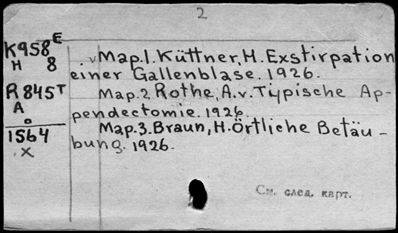 2
K958E
H 8
Map.1. Küttner, H. Exstirpation
einer Gallenblase. 1926.
R845T
A
Map.2 Rothe, A.v. Typische Ap-
pendectomie. 1926.
o
1564
x
Map.3. Braun, H. Örtliche Betäu-
bung. 1926.
См. след. карт.